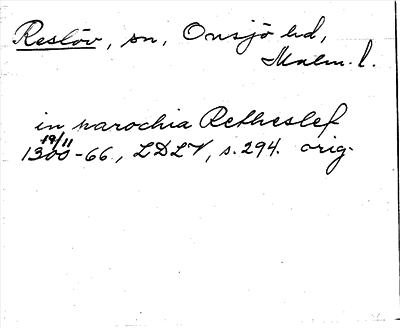 Reslöv, sn, Onsjö hd,
Malm. l.
in parochia Retheslef
19/11
1300-66, LDLV, s. 294. orig.